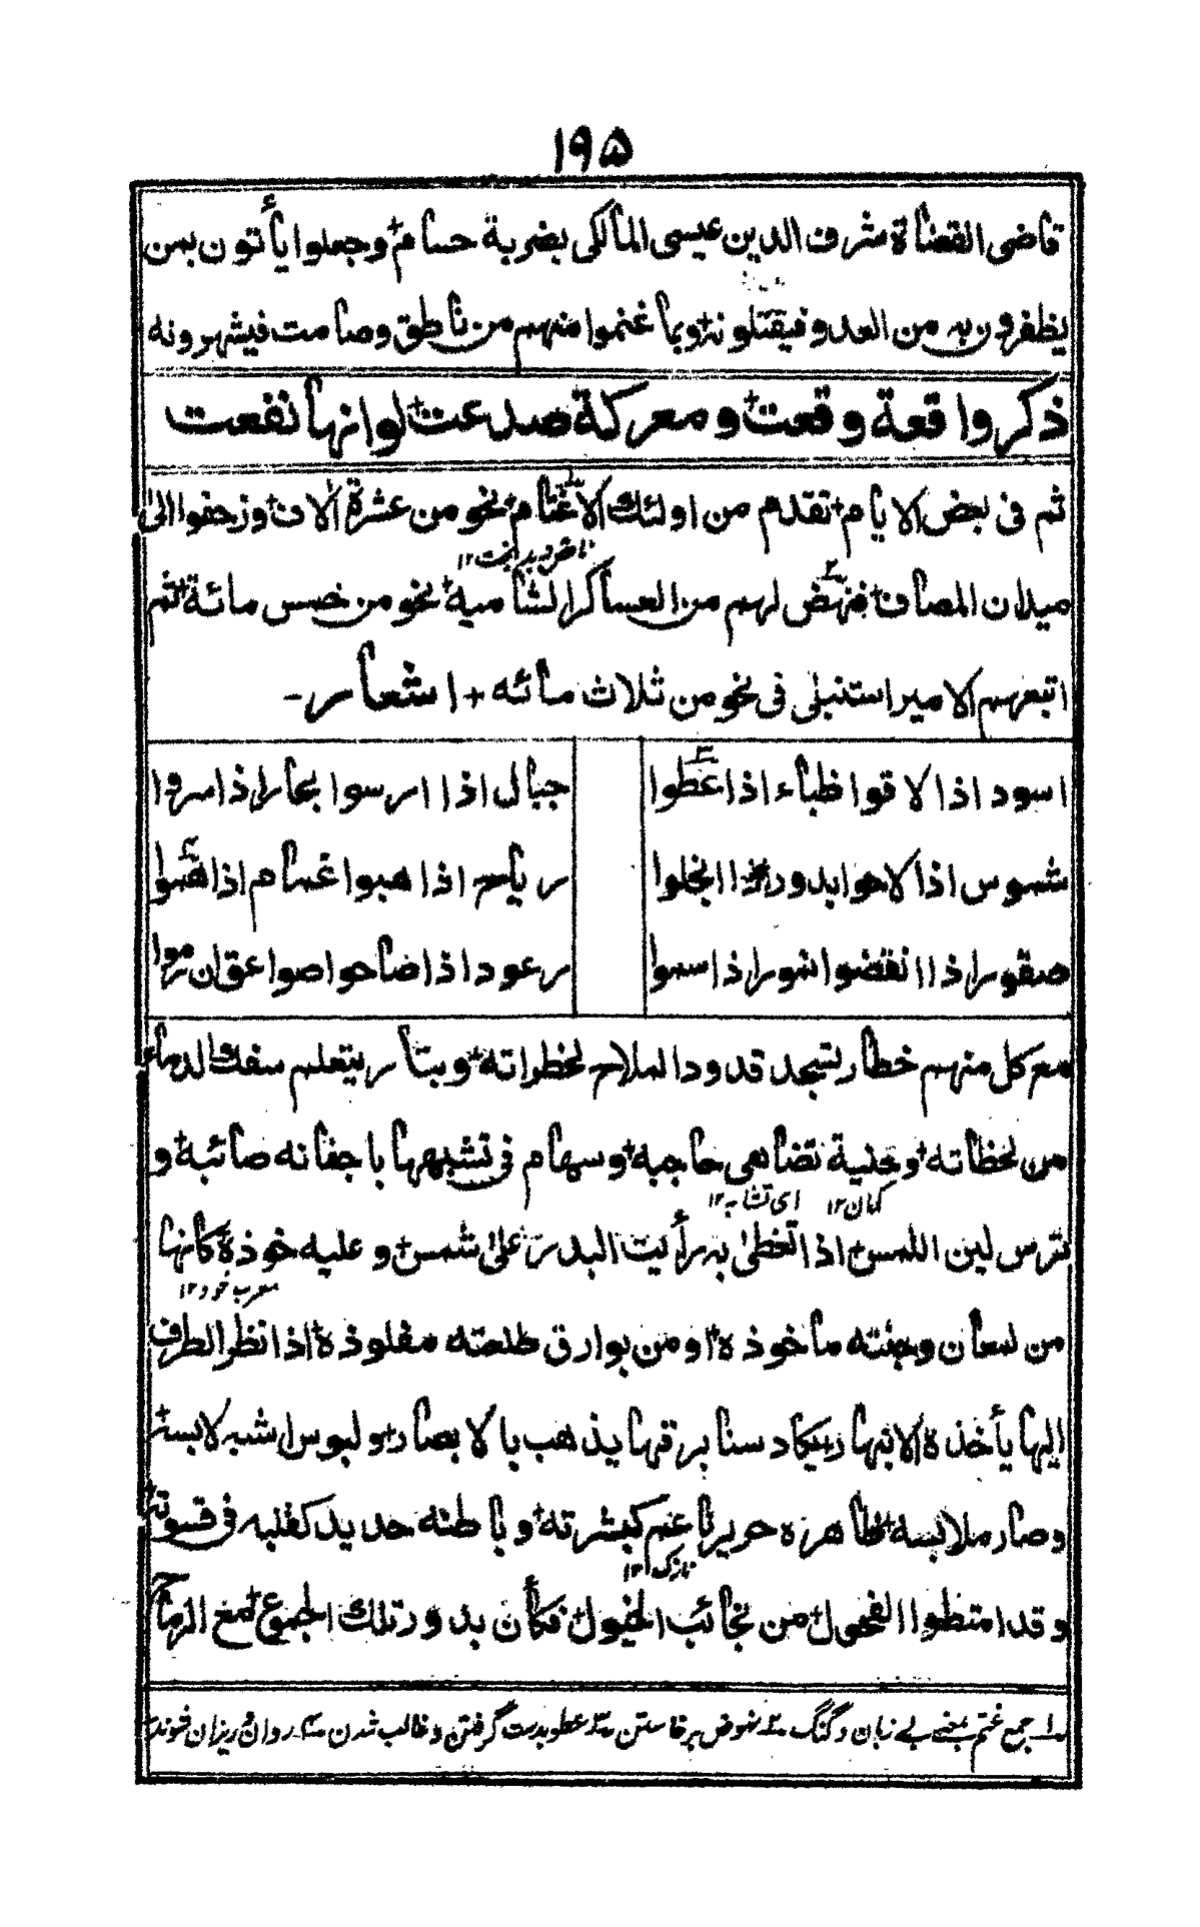 ۱۹۵
قاضى القضاة شرف الدين عيسى المالكى بضربة حسام+ وجعلوا يأتون بمن
يظفرون به من العدو فيقتلونه+ وبما غنموا منهم من ناطق وصامت فيشهرونه
ذكر واقعة وقعت+ ومعركة صدعت+ لو انها نفعت
ثم فى بعض الايام+ تقدم من اولئك الاغتام+ نحو من عشرة آلاف+ وزحفوا الى
ناقص وبدبخت ۱۲
ميدان المصاف+ فنهض لهم من العساكر الشامية+ نحو من خمس مائة+ ثم
اتبعهم الامير استنبلى فى نحو من ثلاث مائه + اشعار-
اسود اذا لاقوا ظباء اذا عطوا جبال اذا ارسوا بحار اذا سروا
شموس اذا لاحوا بدور اذا انجلوا رياح اذا هبوا غمام اذا هموا
صقور اذا انقضوا نمور اذا سموا رعود اذا صاحوا صواعق ان رموا
مع كل منهم خطار تسجد قدود الملاح لخطراته+ وبتار يتعلم سفك الدماء
من لحظاته+ وحنية تضاهى حاجبه+ وسهام فى تشبهها باجفانه صائبة+ و
كمان ۱۲ اى تشابه ۱۲
ترس لين اللمس+ اذا تغطى به رأيت البدر على شمس+ و عليه خوذة كانها
معرب خود ۱۲
من لمعان وجنته ماخوذة+ او من بوارق طلعته مفلوذة+ اذا نظر الطرف
اليها يأخذه الانبهار+ يكاد سنا برقها يذهب بالابصار+ ولبوس اشبه لابسه+
وصار ملابسه+ ظاهره حرير ناعم كبشرته+ وباطنه حديد كقلبه فى قسوته+
نازك ۱۲
وقد امتطوا الفحول+ من نجائب الخيول+ فكأن بدور تلك الجموع+ مع الرماح
جمع غتم بمعنے بے زبان و گنگ نهوض برخاستن عطو بدست گرفتن و غالب شدن روان و ريزان شوند